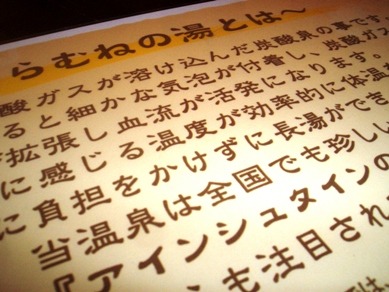 らむねの湯とは〜
酸ガスが溶け込んだ炭酸泉の事です
ると細かな気泡が付着し、炭酸ガス
拡張し血流が活発になります。
に感じる温度が効率的に体温
に負担をかけずに長湯ができ
当温泉は全国でも珍しい
『アインシュタインの
も注目され